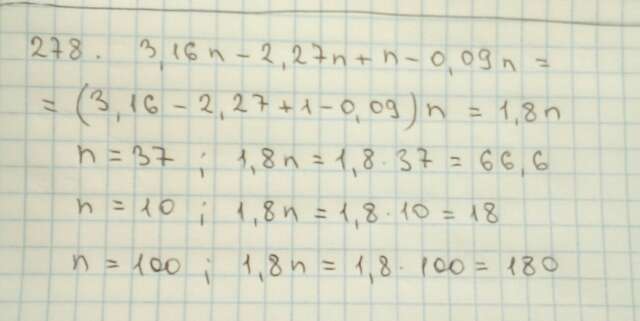 278. 3,16n - 2,27n + n - 0,09n =
= (3,16 - 2,27 + 1 - 0,09)n = 1,8n
n = 37 ; 1,8n = 1,8 · 37 = 66,6
n = 10 ; 1,8n = 1,8 · 10 = 18
n = 100 ; 1,8n = 1,8 · 100 = 180